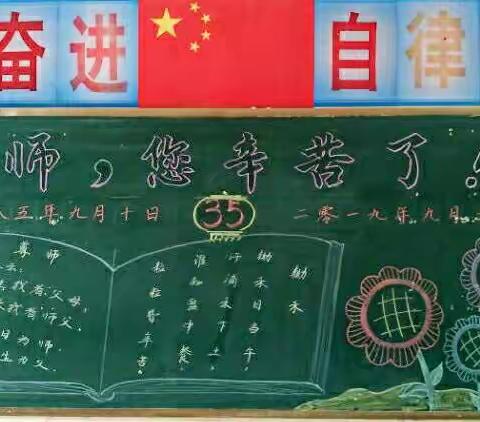 奋进 自律
师，您辛苦了！
八五年九月十日 35 二零一九年九月
尊师
我者父母，
我者师父，
日为师，
生为父。
锄禾
锄禾日当午，
汗滴禾下土。
谁知盘中餐，
粒粒皆辛苦。